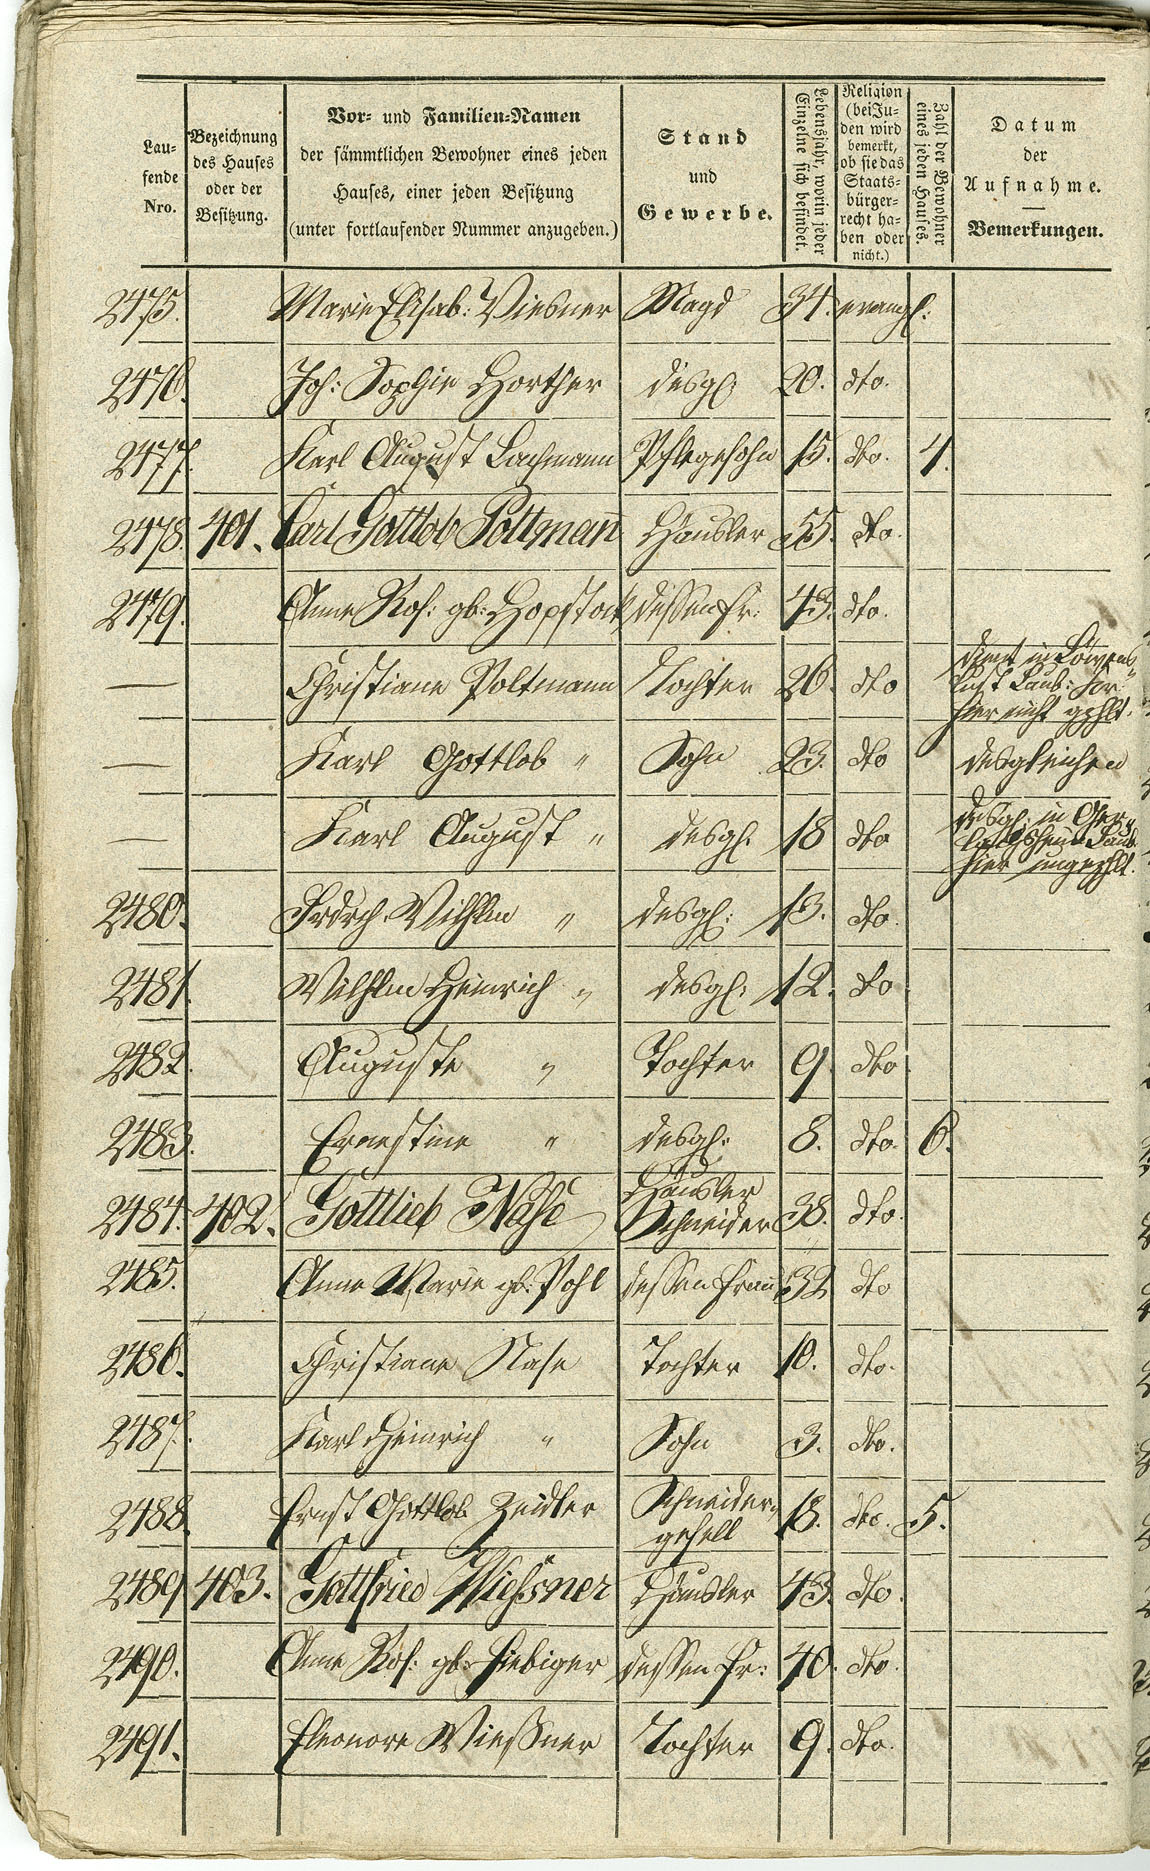 Lau-
fende
Nro.
Bezeichnung
des Hauses
oder der
Besitzung.
Vor- und Familien-Namen
der sämmtlichen Bewohner eines jeden
Hauses, einer jeden Besitzung
(unter fortlaufender Nummer anzugeben.)
Stand
und
Gewerbe.
Lebensjahr, worin jeder
Einzelne sich befindet.
Religion
(bei Ju-
den wird
bemerkt,
ob sie das
Staats-
bürger-
recht ha-
ben oder
nicht.)
Zahl der Bewohner
eines jeden Hauses.
Datum
der
Aufnahme.
Bemerkungen.
2475. Marie Elisab: Viesner Magd 34. evangl:
2476. Joh: Sophie Horther desgl: 20. dto.
2477. Karl August Lachmann Pflegesohn 15. dto. 4.
2478. 401. Carl Gottlob Poltmann Häusler 55. dto.
2479. Anne Ros: gb: Hopstock dessen Fr: 43. dto.
— Christiane Poltmann Tochter 26. dto dient in
Laub:
hier nicht gzhlt.
— Karl Gottlob " Sohn 23. dto desgleichen
— Karl August " desgl. 18 dto desgl: in Ger-
lachsheim Laub.
hier ungezhlt.
2480. Frdrch. Wilhlm " desgl: 13. dto.
2481. Wilhlm Heinrich " desgl: 12. dto
2482. Auguste " Tochter 9. dto.
2483. Ernestine " desgl: 8. dto. 6.
2484. 402. Gottlieb Nase Häusler
Schneider 38. dto.
2485. Anne Marie gb: Pohl dessen Frau 32 dto
2486. Christiane Nase Tochter 10. dto.
2487. Karl Heinrich " Sohn 3. dto.
2488. Ernst Gottlob Zeidler Schneider-
gesell 18. dto. 5.
2489 403. Gottfried Wießner Häusler 43. dto.
2490. Anne Ros: gb: Fiebiger dessen Fr: 40. dto.
2491. Eleonore Wießner Tochter 9. dto.